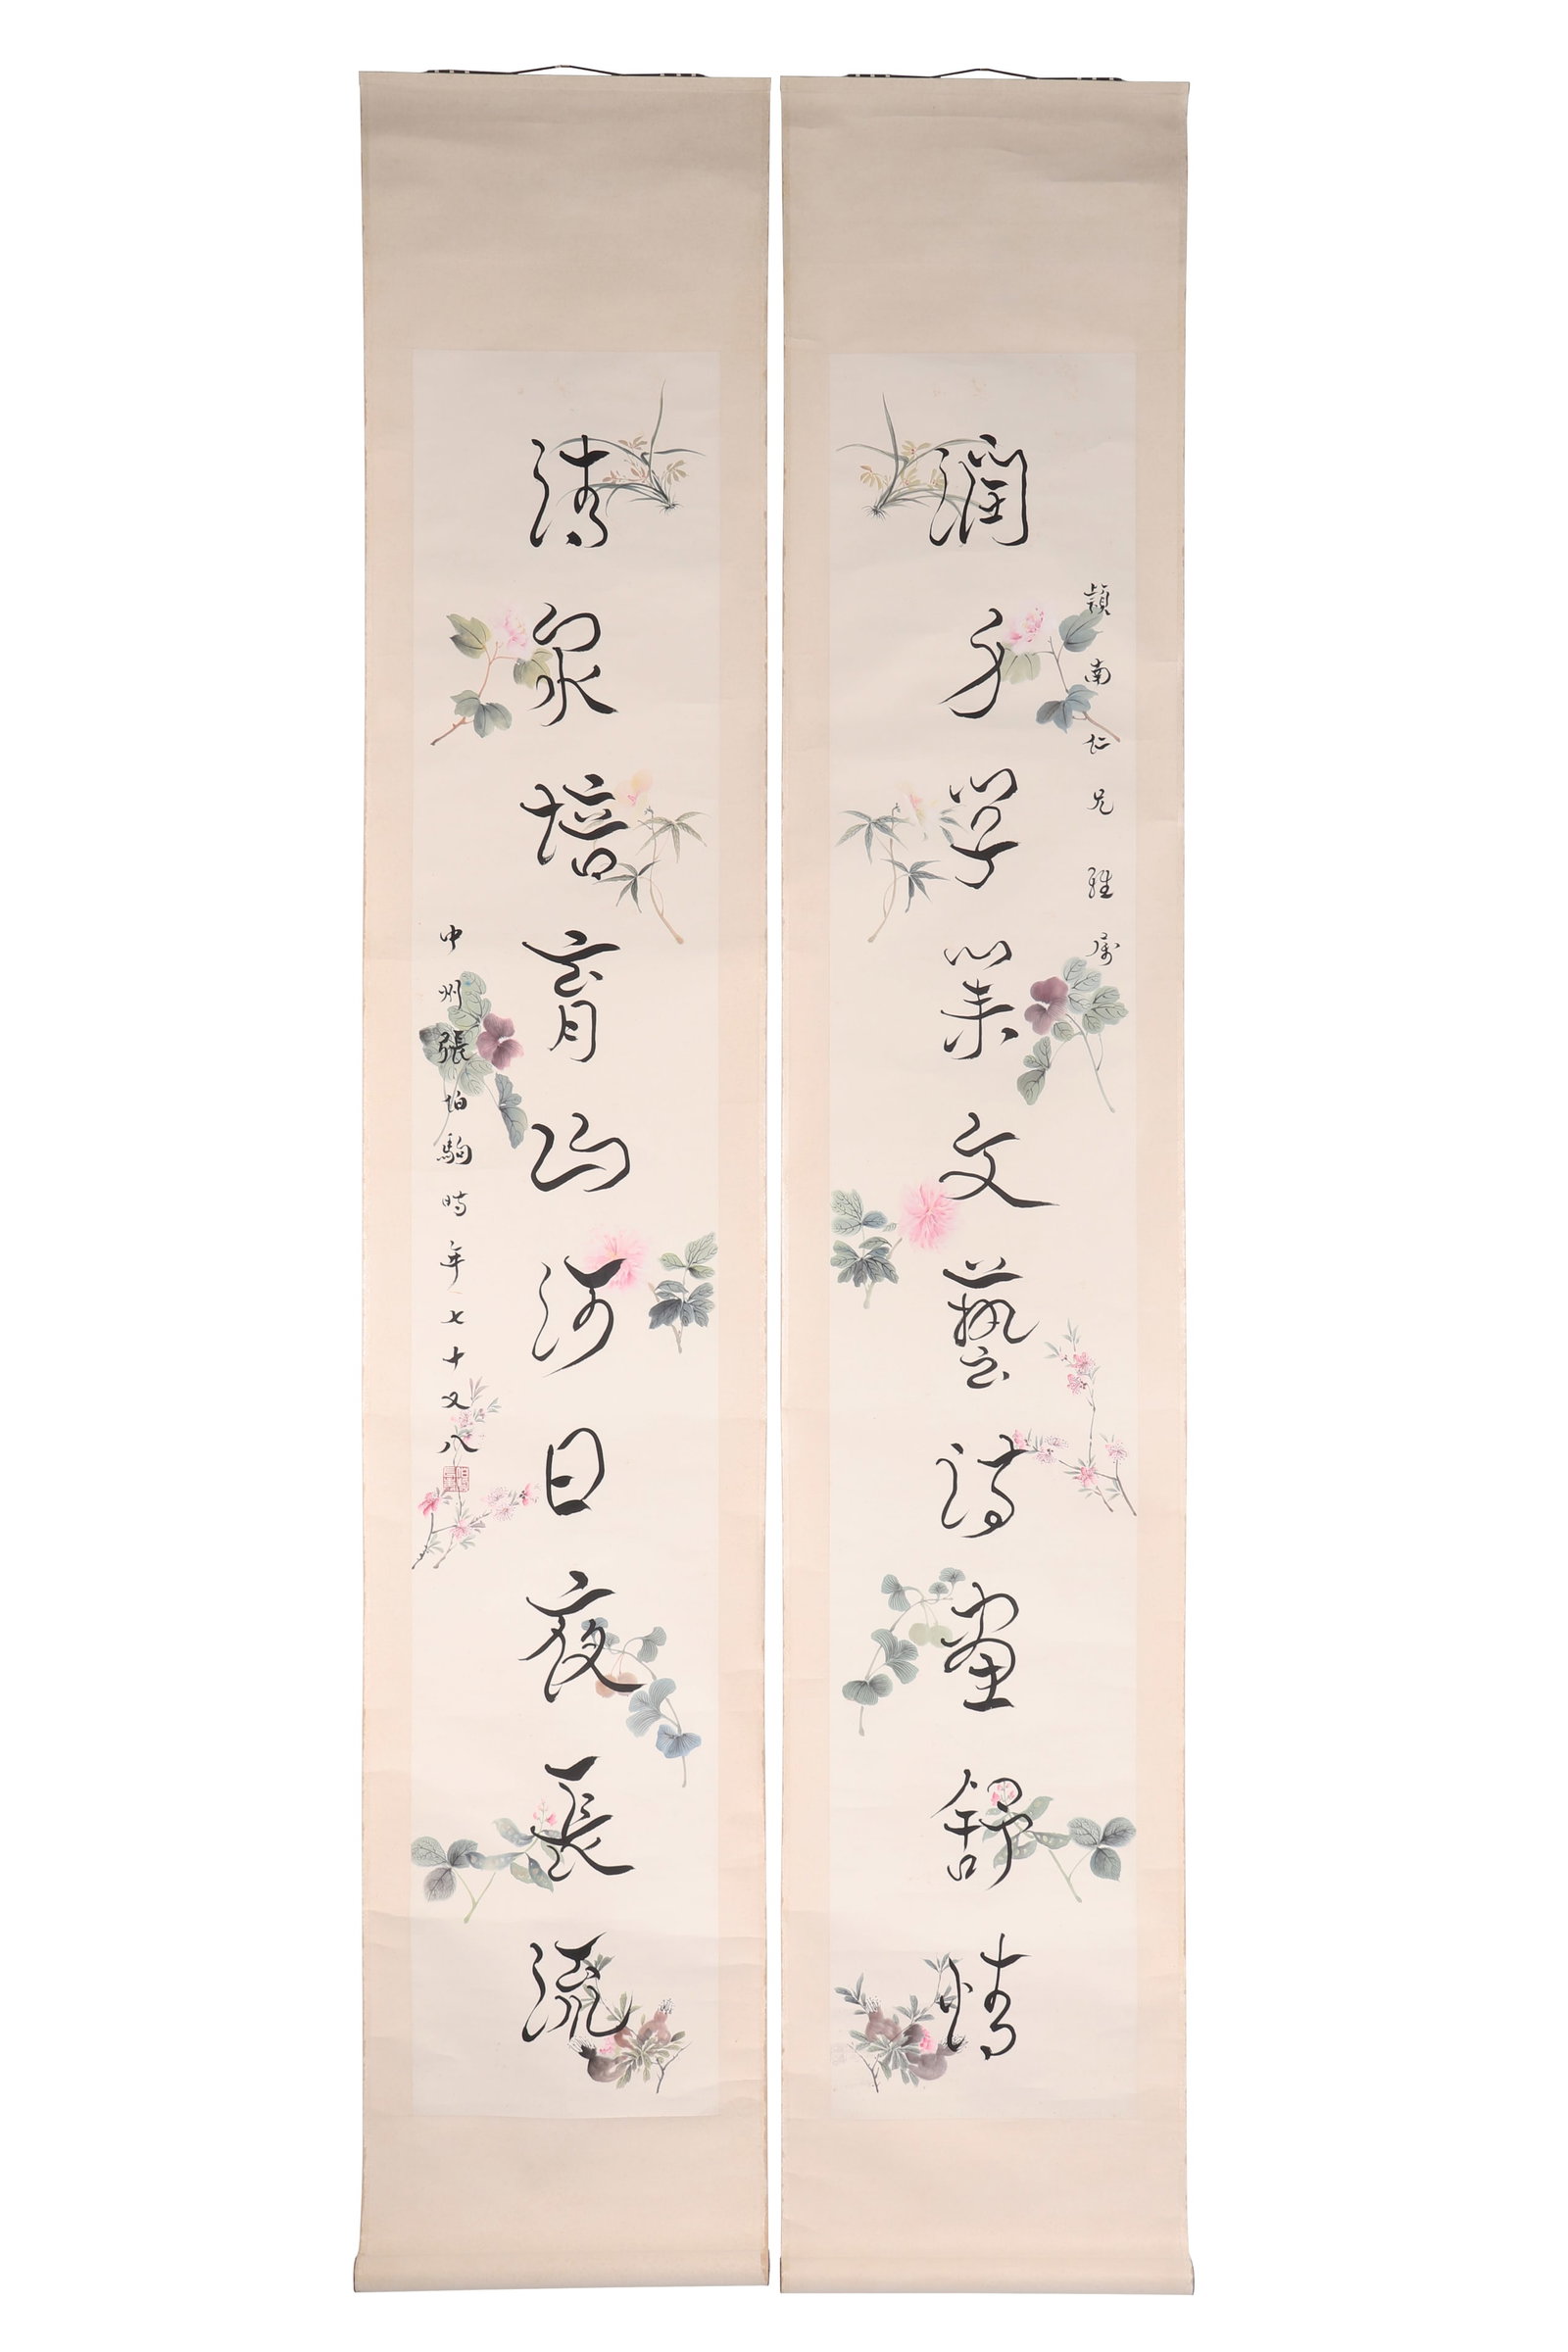 潁南仁兄雅属
潤身學業文藝詩畫舒情
清泉培育山河日夜長流
中州張伯駒時年七十又八